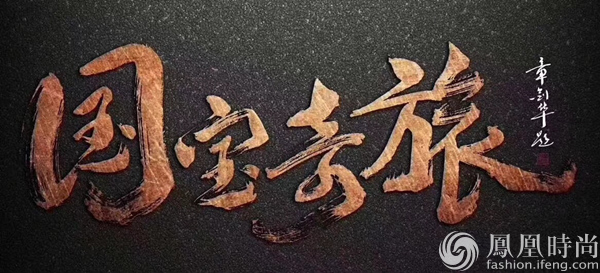 国宝奇旅
章剑华题
鳳凰時尚
fashion.ifeng.com